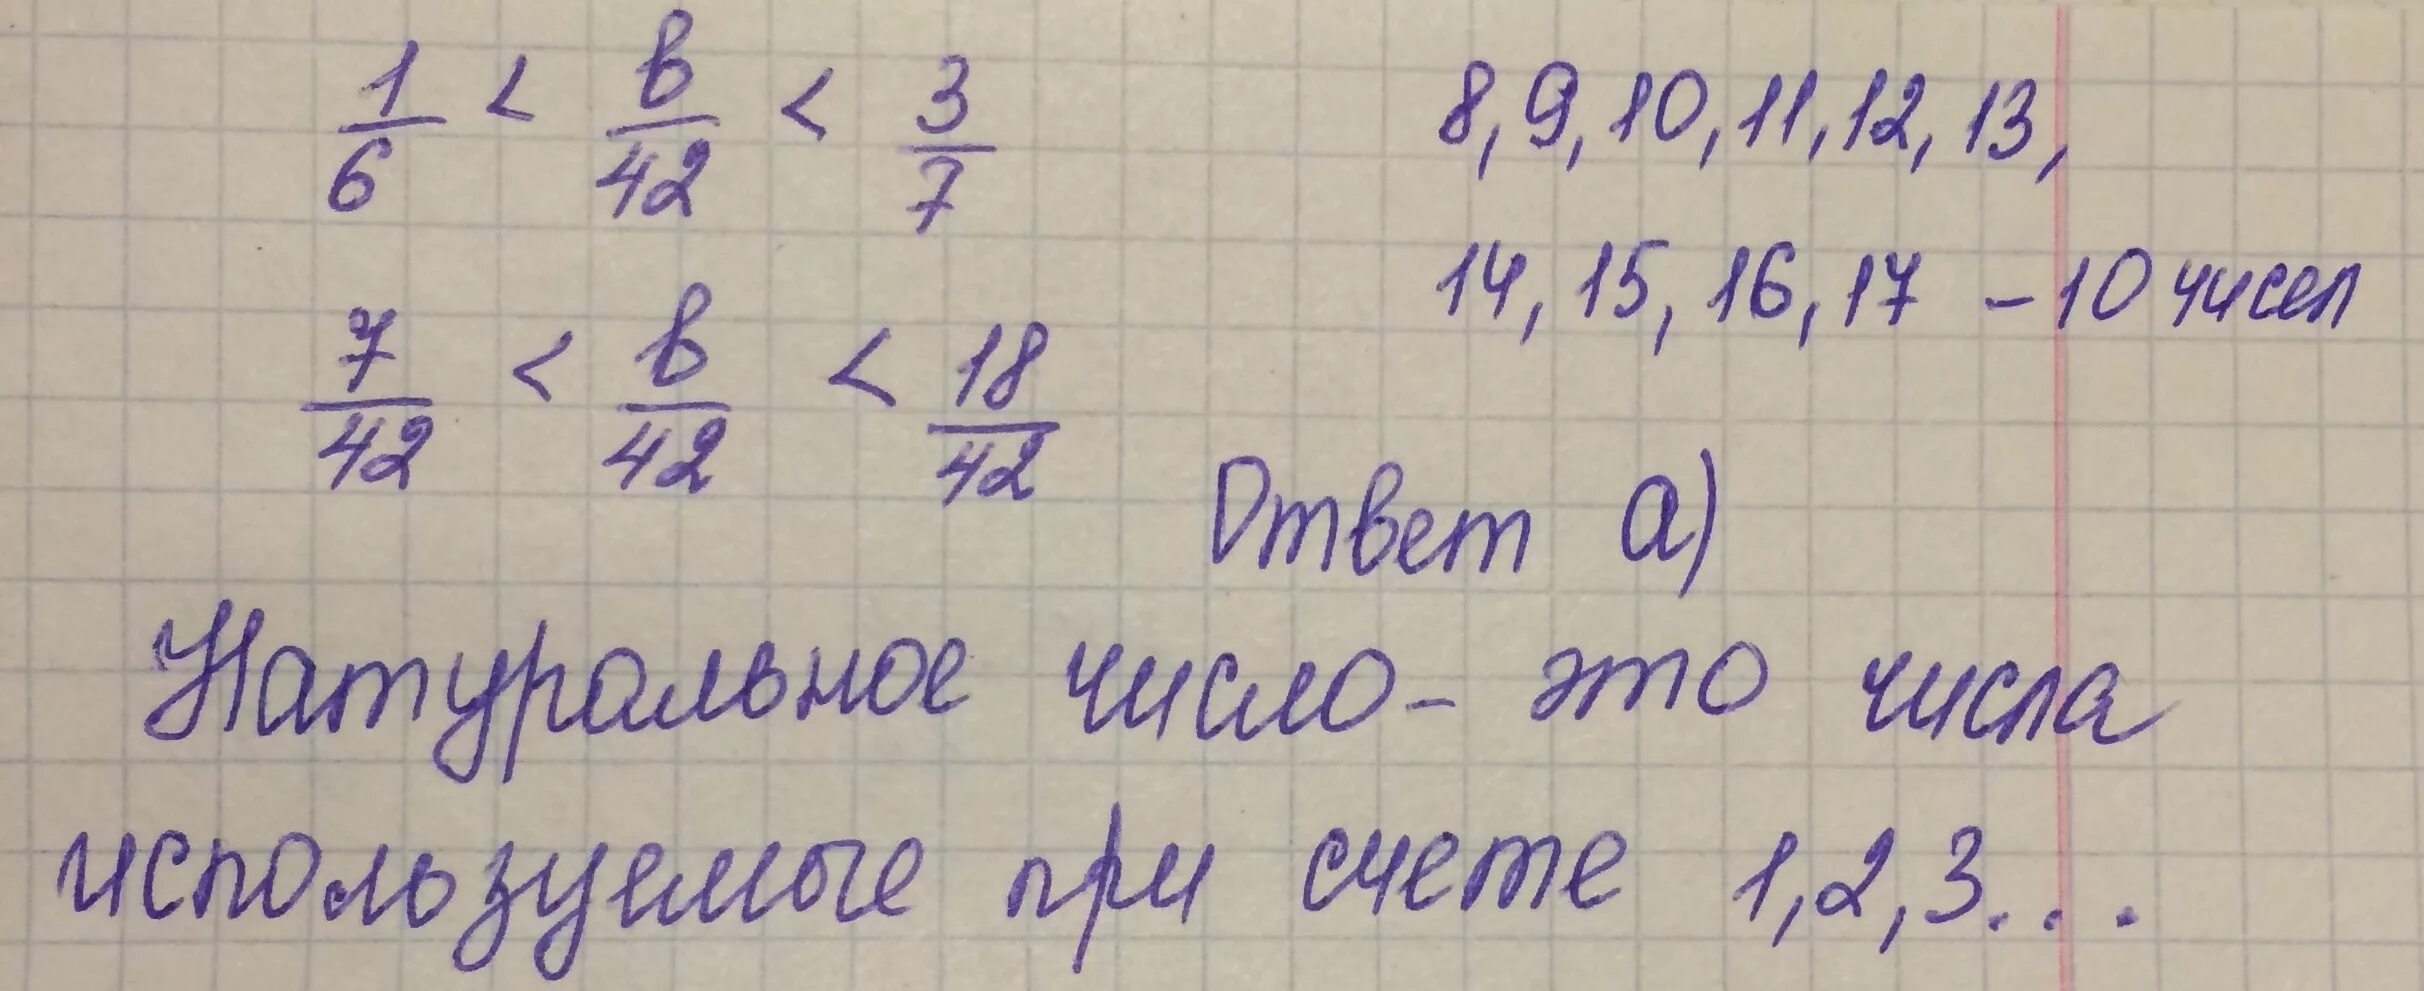 1/6 < в/42 < 3/7
7/42 < в/42 < 18/42
8, 9, 10, 11, 12, 13,
14, 15, 16, 17 – 10 чисел
Ответ а)
Натуральное число – это числа
используемые при счете 1, 2, 3...